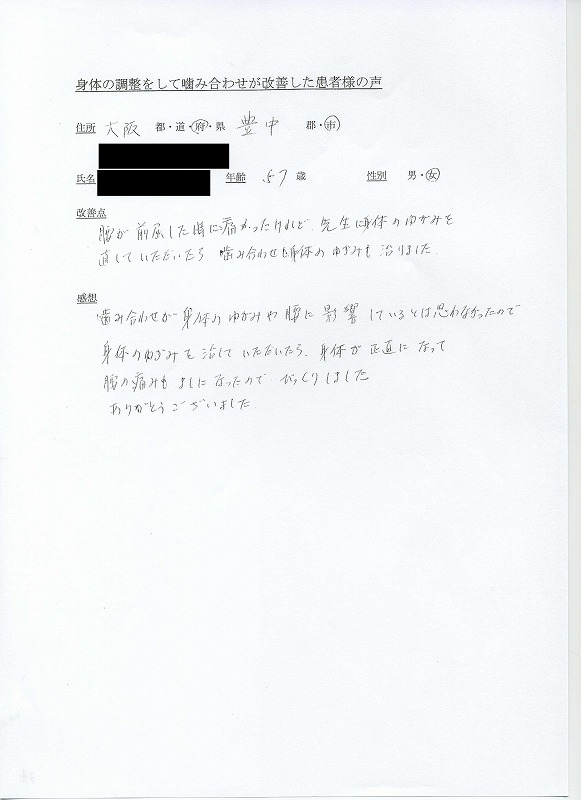 身体の調整をして噛み合わせが改善した患者様の声
住所 大阪 都・道・府・県 豊中 郡・市
氏名 年齢 57歳 性別 男・女
改善点
腰が前屈した時に痛かったけれど、先生に身体のゆがみを
直していただいたら 噛み合わせも身体のゆがみも 治りました。
感想
噛み合わせが身体のゆがみや腰に影響しているとは思わなかったので
身体のゆがみを治していただいたら、身体が正直になって
腰の痛みも なったので びっくりしました
ありがとうございました。